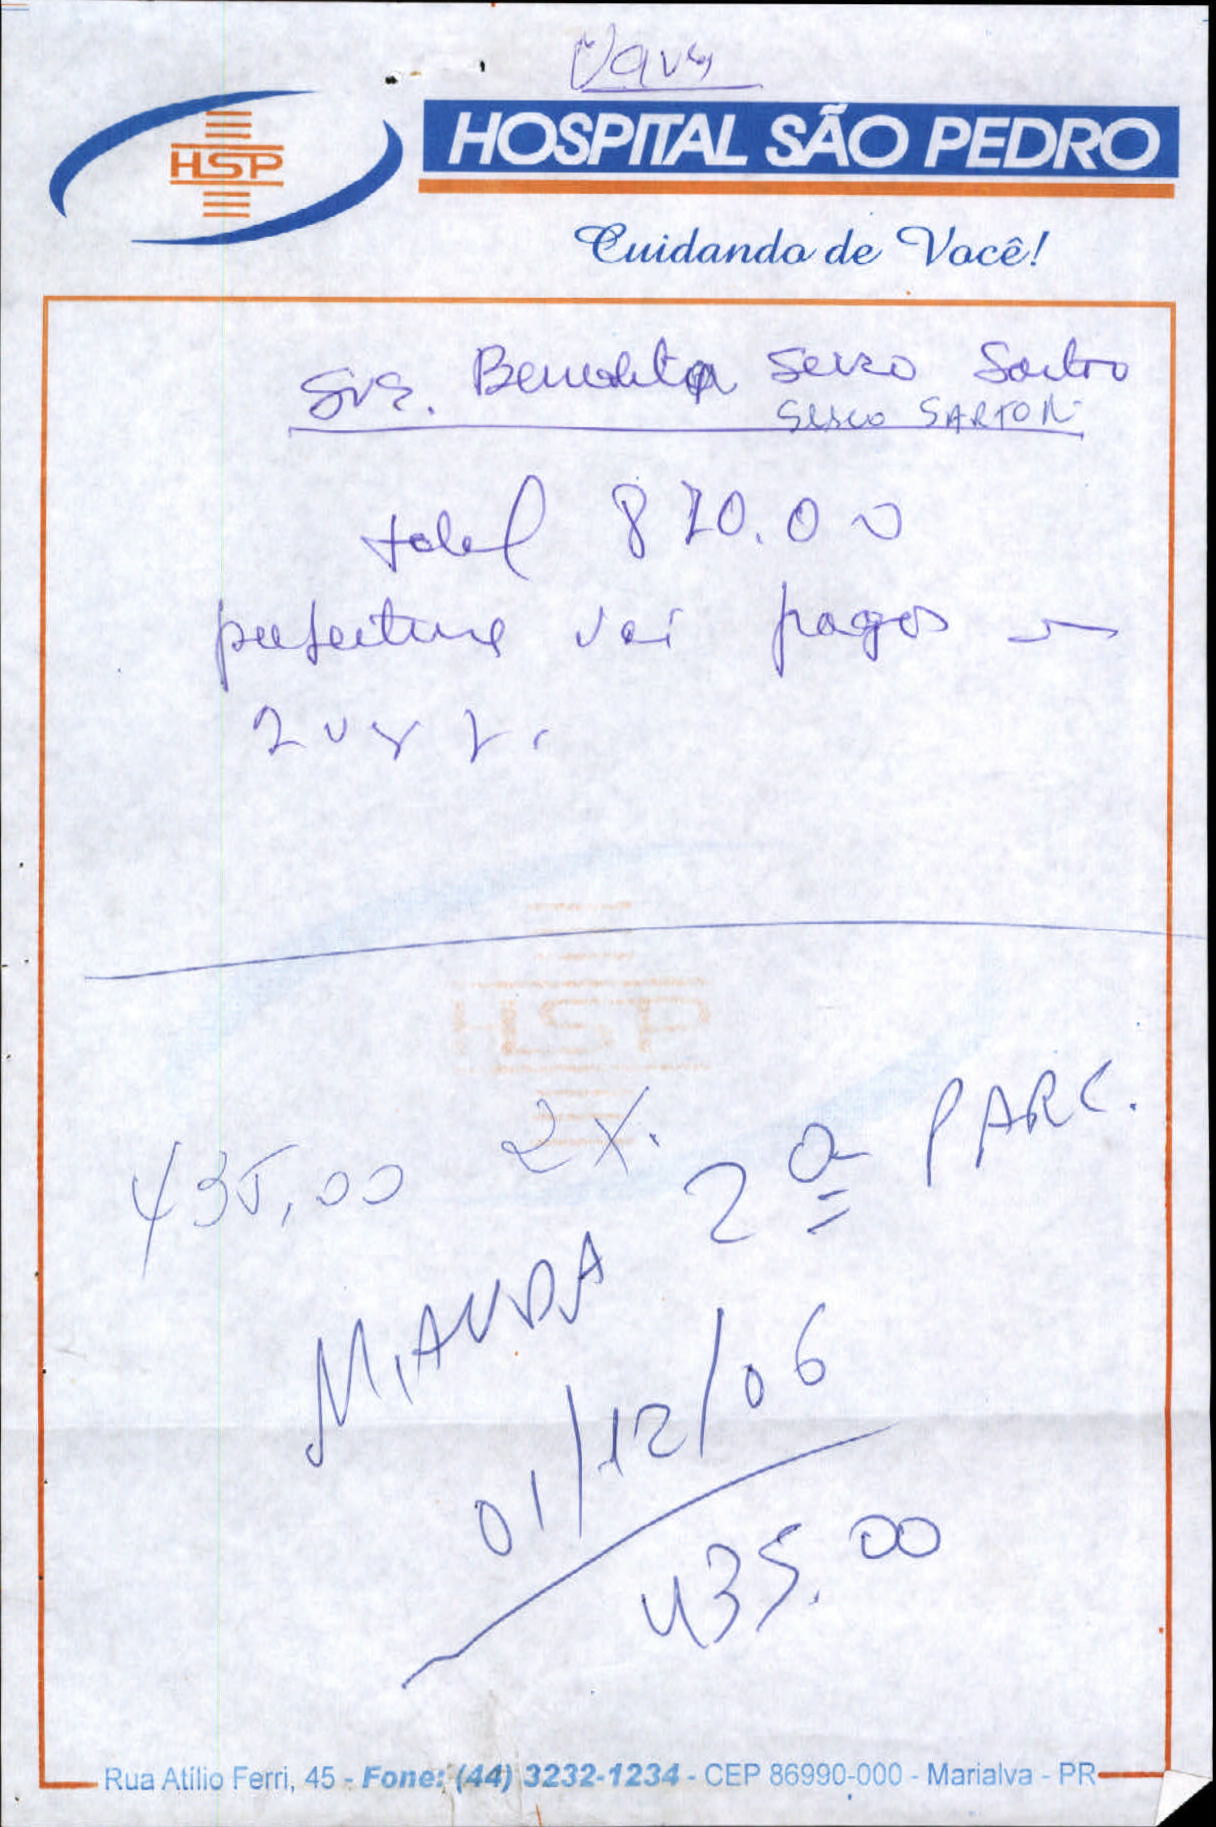 HSP
HOSPITAL SÃO PEDRO
Cuidando de Você!
Sra. Benedita
SARTORI
total 870.00
prefeitura vai pagar
2
HSP
435,00 2X.
MANDA 2ª PARC.
01/12/06
435.00
Rua Atílio Ferri, 45 - Fone: (44) 3232-1234 - CEP 86990-000 - Marialva - PR